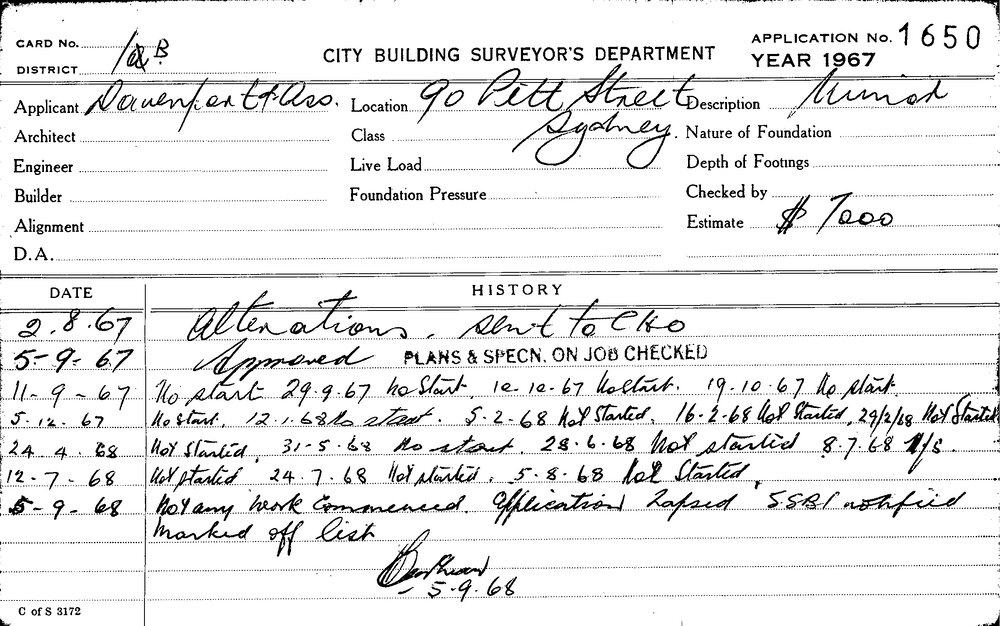 CARD No. 1a B
DISTRICT
CITY BUILDING SURVEYOR'S DEPARTMENT
APPLICATION No. 1650
YEAR 1967
Applicant Davenport & Ass. Location 90 Pitt Street Description
Architect Class Sydney. Nature of Foundation
Engineer Live Load Depth of Footings
Builder Foundation Pressure Checked by
Alignment Estimate $ 7000
D.A.
DATE HISTORY
2.8.67 Alterations. sent to CHO
5-9-67 Approved PLANS & SPECN. ON JOB CHECKED
11-9-67 No start 29.9.67 No Start. 10-10-67 No start. 19.10.67 No start.
5.12.67 No start. 12.1.68 No start. 5-2-68 Not Started. 16-2-68 Not Started. 29/2/68 Not Started
24.4.68 Not Started. 31-5-68 No start. 28.6.68 Not started 8.7.68 N/S.
12-7-68 Not started 24.7.68 Not started. 5-8-68 Not Started.
5-9-68 Not any work Commenced. Application Lapsed SSBI notified
Marked off list
5.9.68
C of S 3172